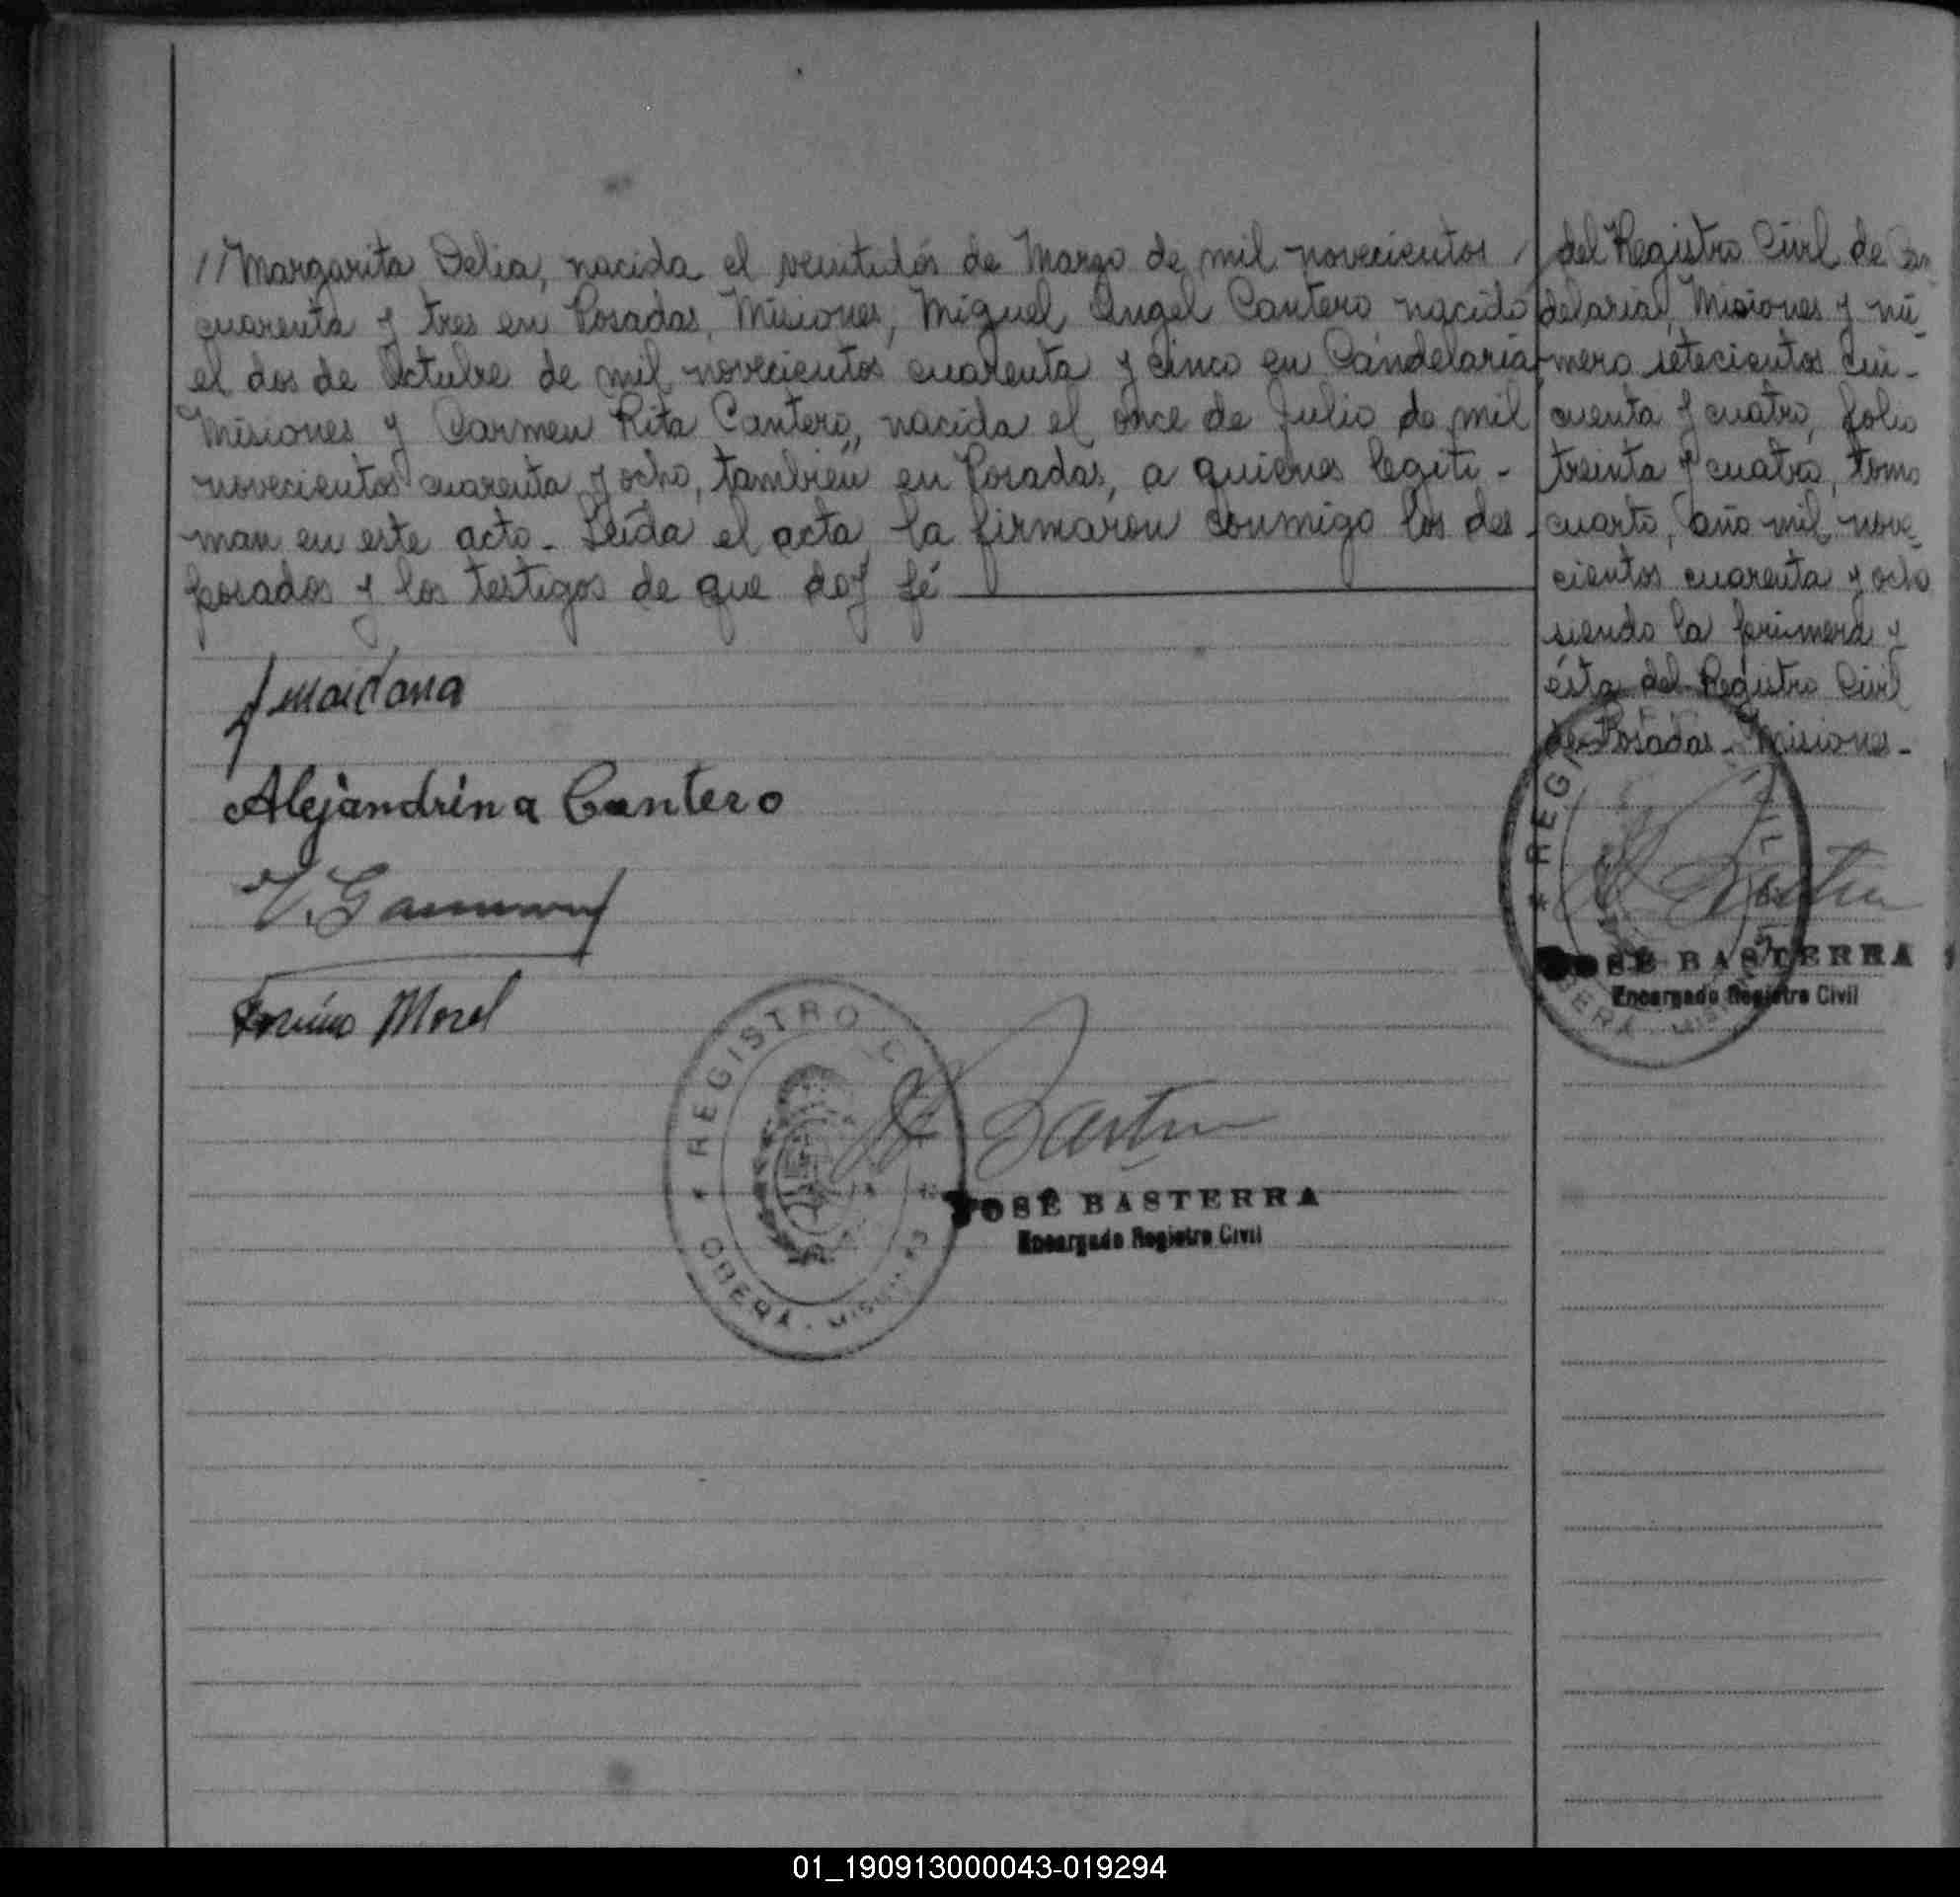 // Margarita Delia, nacida el veintidós de Marzo de mil novecientos
cuarenta y tres en Posadas, Misiones, Miguel Angel Cantero nacido
el dos de Octubre de mil novecientos cuarenta y cinco en Candelaria
Misiones y Carmen Rita Cantero, nacida el once de Julio de mil
novecientos cuarenta y ocho, también en Posadas, a quienes legiti-
man en este acto.- Leída el acta la firmaron conmigo los des-
posados y los testigos de que doy fé
J Maidana
Alejandrina Cantero
Morel
REGISTRO CIVIL
OBERÁ - MISIONES
JOSÉ BASTERRA
Encargado Registro Civil
del Registro Civil de Can-
delaria, Misiones y nú-
mero setecientos cin-
cuenta y cuatro, folio
treinta y cuatro, tomo
cuarto, año mil nove-
cientos cuarenta y ocho
siendo la primera y
ésta del Registro Civil
de Posadas - Misiones-
JOSÉ BASTERRA
Encargado Registro Civil
01_190913000043-019294